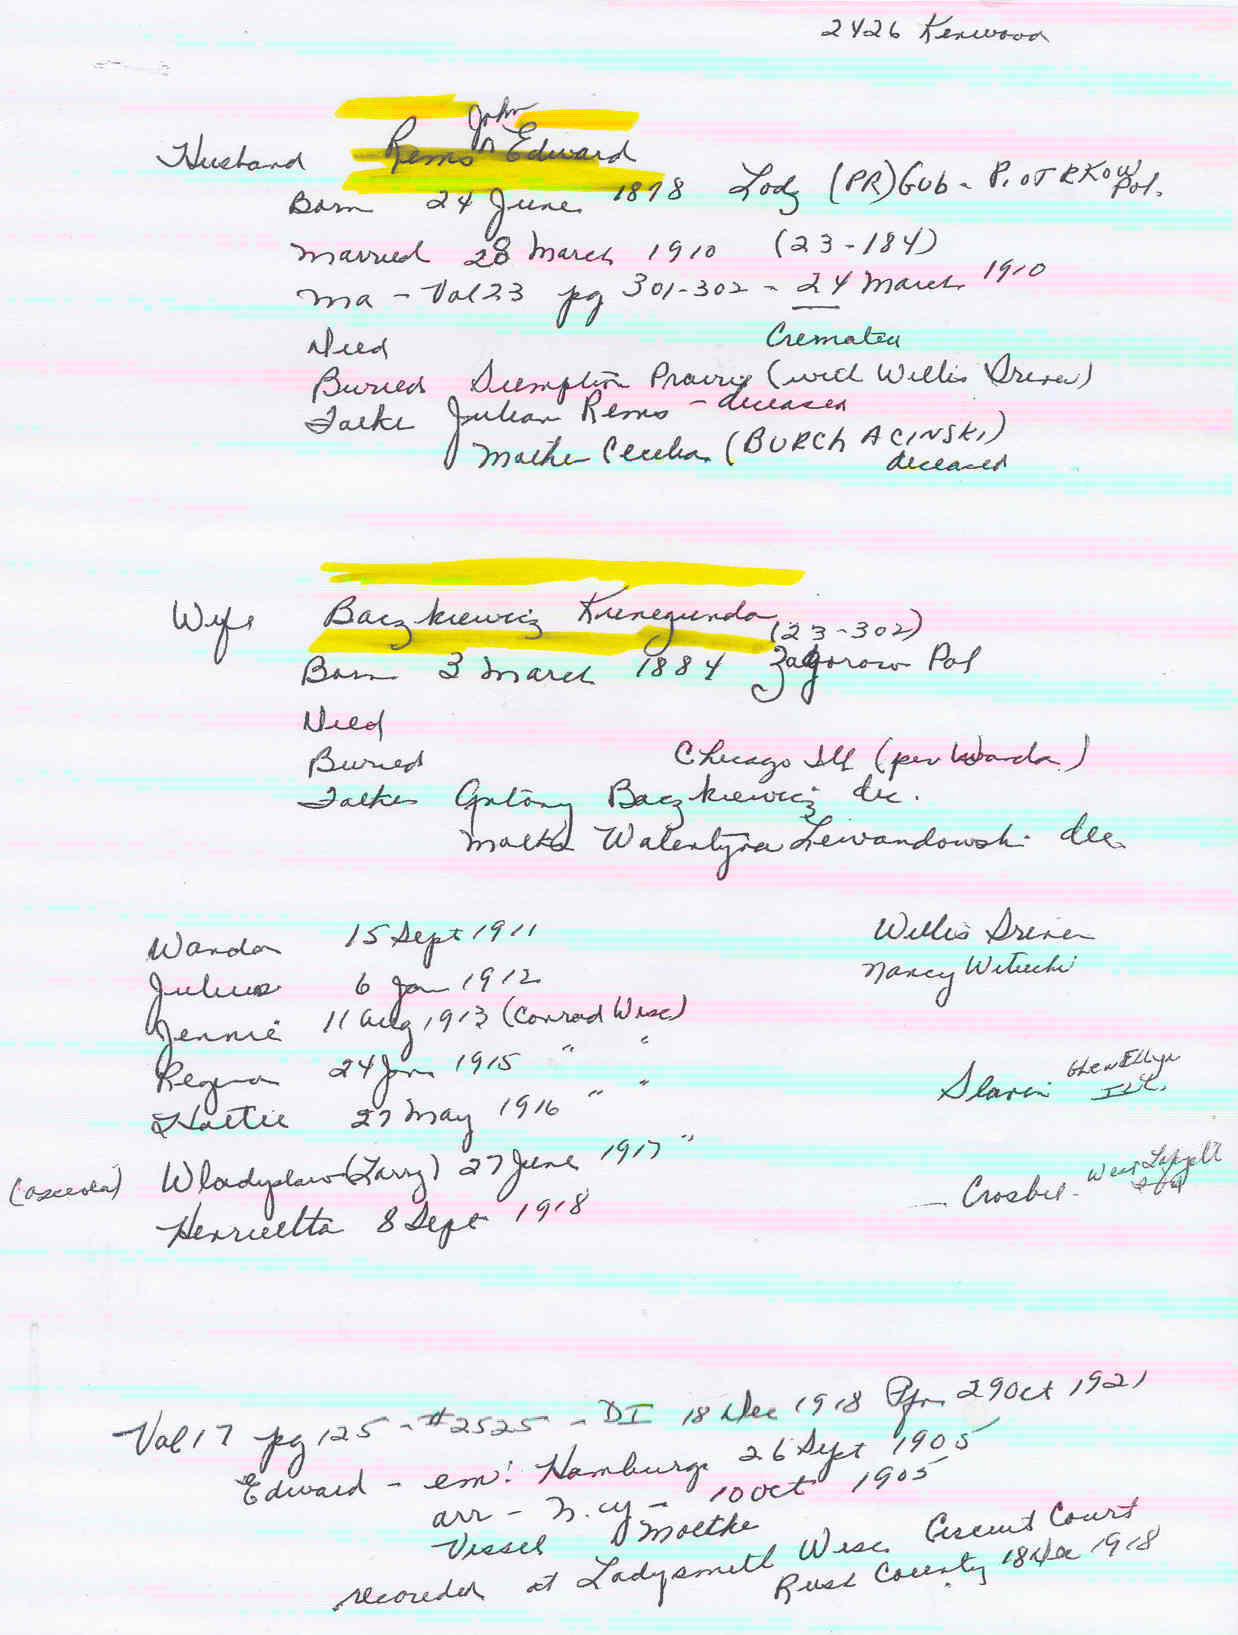 2426 Kenwood
John
Husband Rems ^ Edward
Born 24 June 1878 Lodz (PR) Gub - PIOTRKOW Pol.
Married 28 March 1910 (23-184)
Ma - Vol 23 pg 301-302 - 24 March 1910
Died Cremated
Buried Dempliön Prairie (with Willis Driver)
Father Julian Rems - deceased
Mother Cecelia (BURCHACINSKI) deceased
Wife Baczkiewicz Kunegunda (23-302)
Born 3 March 1884 Zagorow Pol
Died
Buried Chicago Ill (per Wanda)
Father Antony Baczkiewicz dec.
Mother Walentyna Lewandowski dec.
Wanda 15 Sept 1911 Willis Driver
Julius 6 Jan 1912 Nancy Witucki
Jennie 11 Aug 1913 (Conrad Wisc)
Regina 24 Jan 1915 " "
Slavin Glen Ellyn ILL.
Hattie 27 May 1916 " "
(Osceola) Wladyslaw (Larry) 27 June 1917 "
— Crosbie - West
Henrietta 8 Sept 1918
Vol 17 pg 125 - #2525 - DI 18 Dec 1918 29 Oct 1921
Edward - em: Hamburg 26 Sept 1905
arr - N.Y - 10 Oct 1905
Vessel Moltke
recorded at Ladysmith Wisc Circuit Court
Rusk County 18 Dec 1918